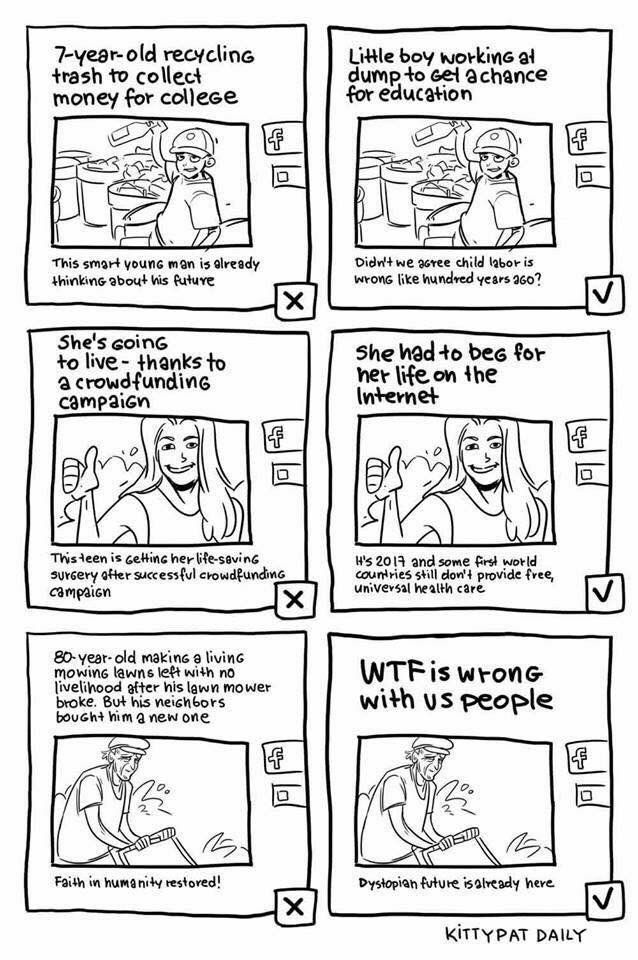 7-year-old recycling
trash to collect
money for college
f
This smart young man is already
thinking about his future
X
Little boy working at
dump to get a chance
for education
f
Didn't we agree child labor is
wrong like hundred years ago?
She's going
to live - thanks to
a crowdfunding
campaign
f
This teen is getting her life-saving
surgery after successful crowdfunding
campaign
X
She had to beg for
her life on the
Internet
f
It's 2017 and some first world
countries still don't provide free,
universal health care
80-year-old making a living
mowing lawns left with no
livelihood after his lawn mower
broke. But his neighbors
bought him a new one
f
Faith in humanity restored!
X
WTF is wrong
with us people
f
Dystopian future is already here
KITTYPAT DAILY